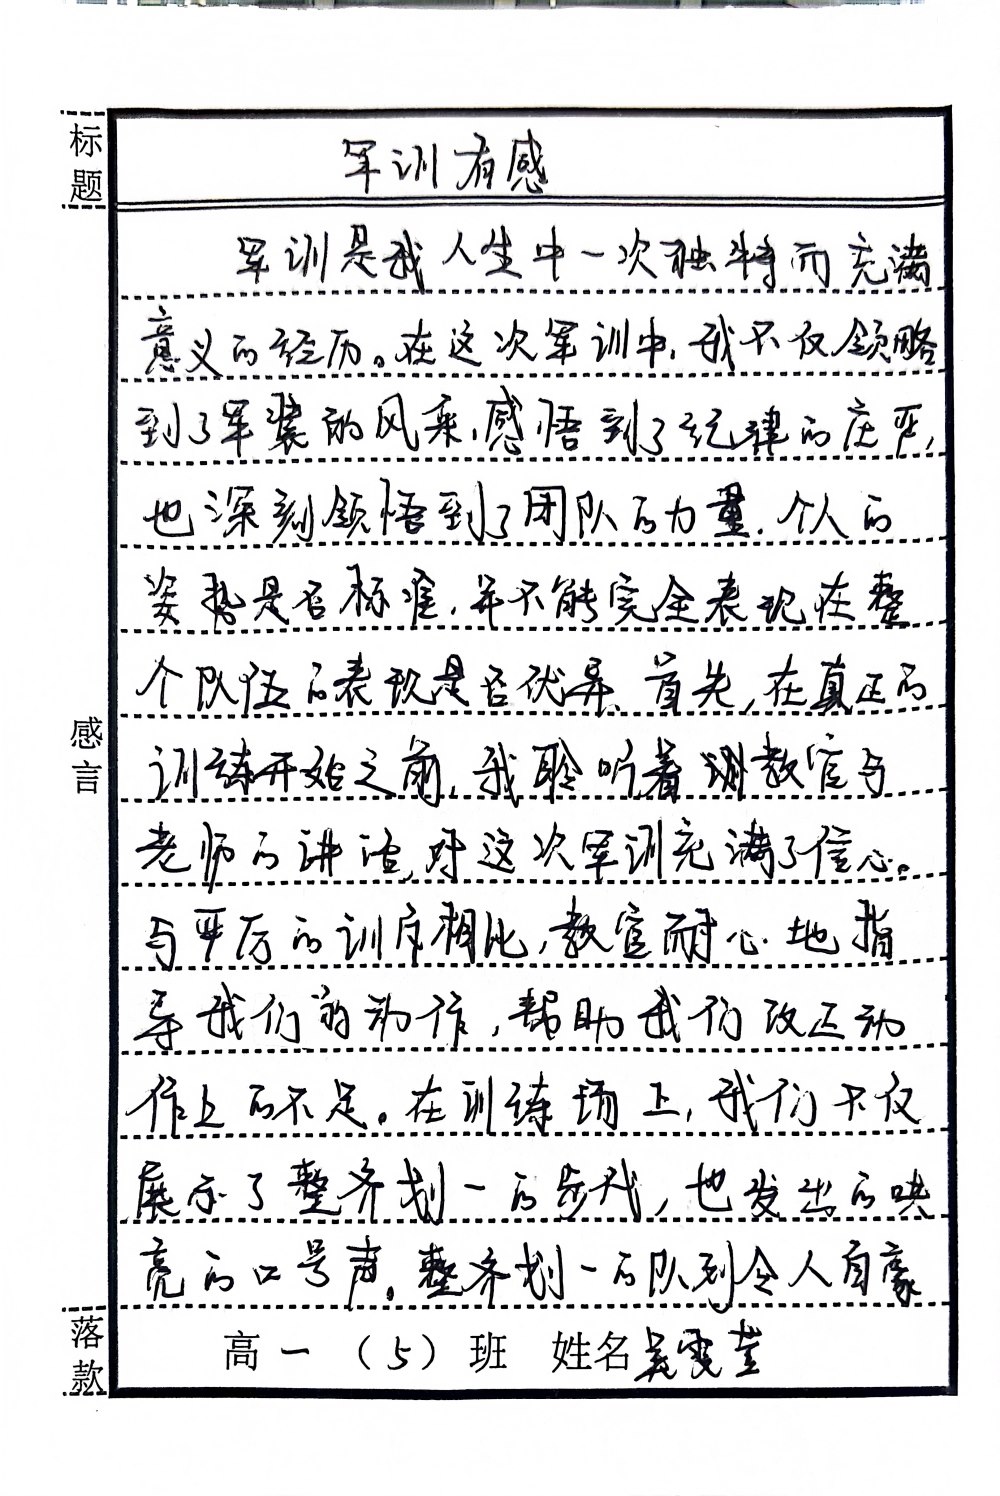 标题
军训有感
军训是我人生中一次独特而充满
意义的经历。在这次军训中,我不仅领略
到了军装的风采,感悟到了纪律的庄严,
也深刻领悟到了团队的力量.个人的
姿势是否标准,并不能完全表现在整
个队伍的表现是否优异.首先,在真正的
训练开始之前,我聆听着 教官与
老师的讲话,对这次军训充满了信心。
与严厉的训斥相比,教官耐心地指
导我们的动作,帮助我们改正动
作上的不足。在训练场上,我们不仅
展示了整齐划一的步伐,也发出的哄
亮的口号声。整齐划一的队列令人自豪
感言
落款
高一(5)班 姓名吴雯萱